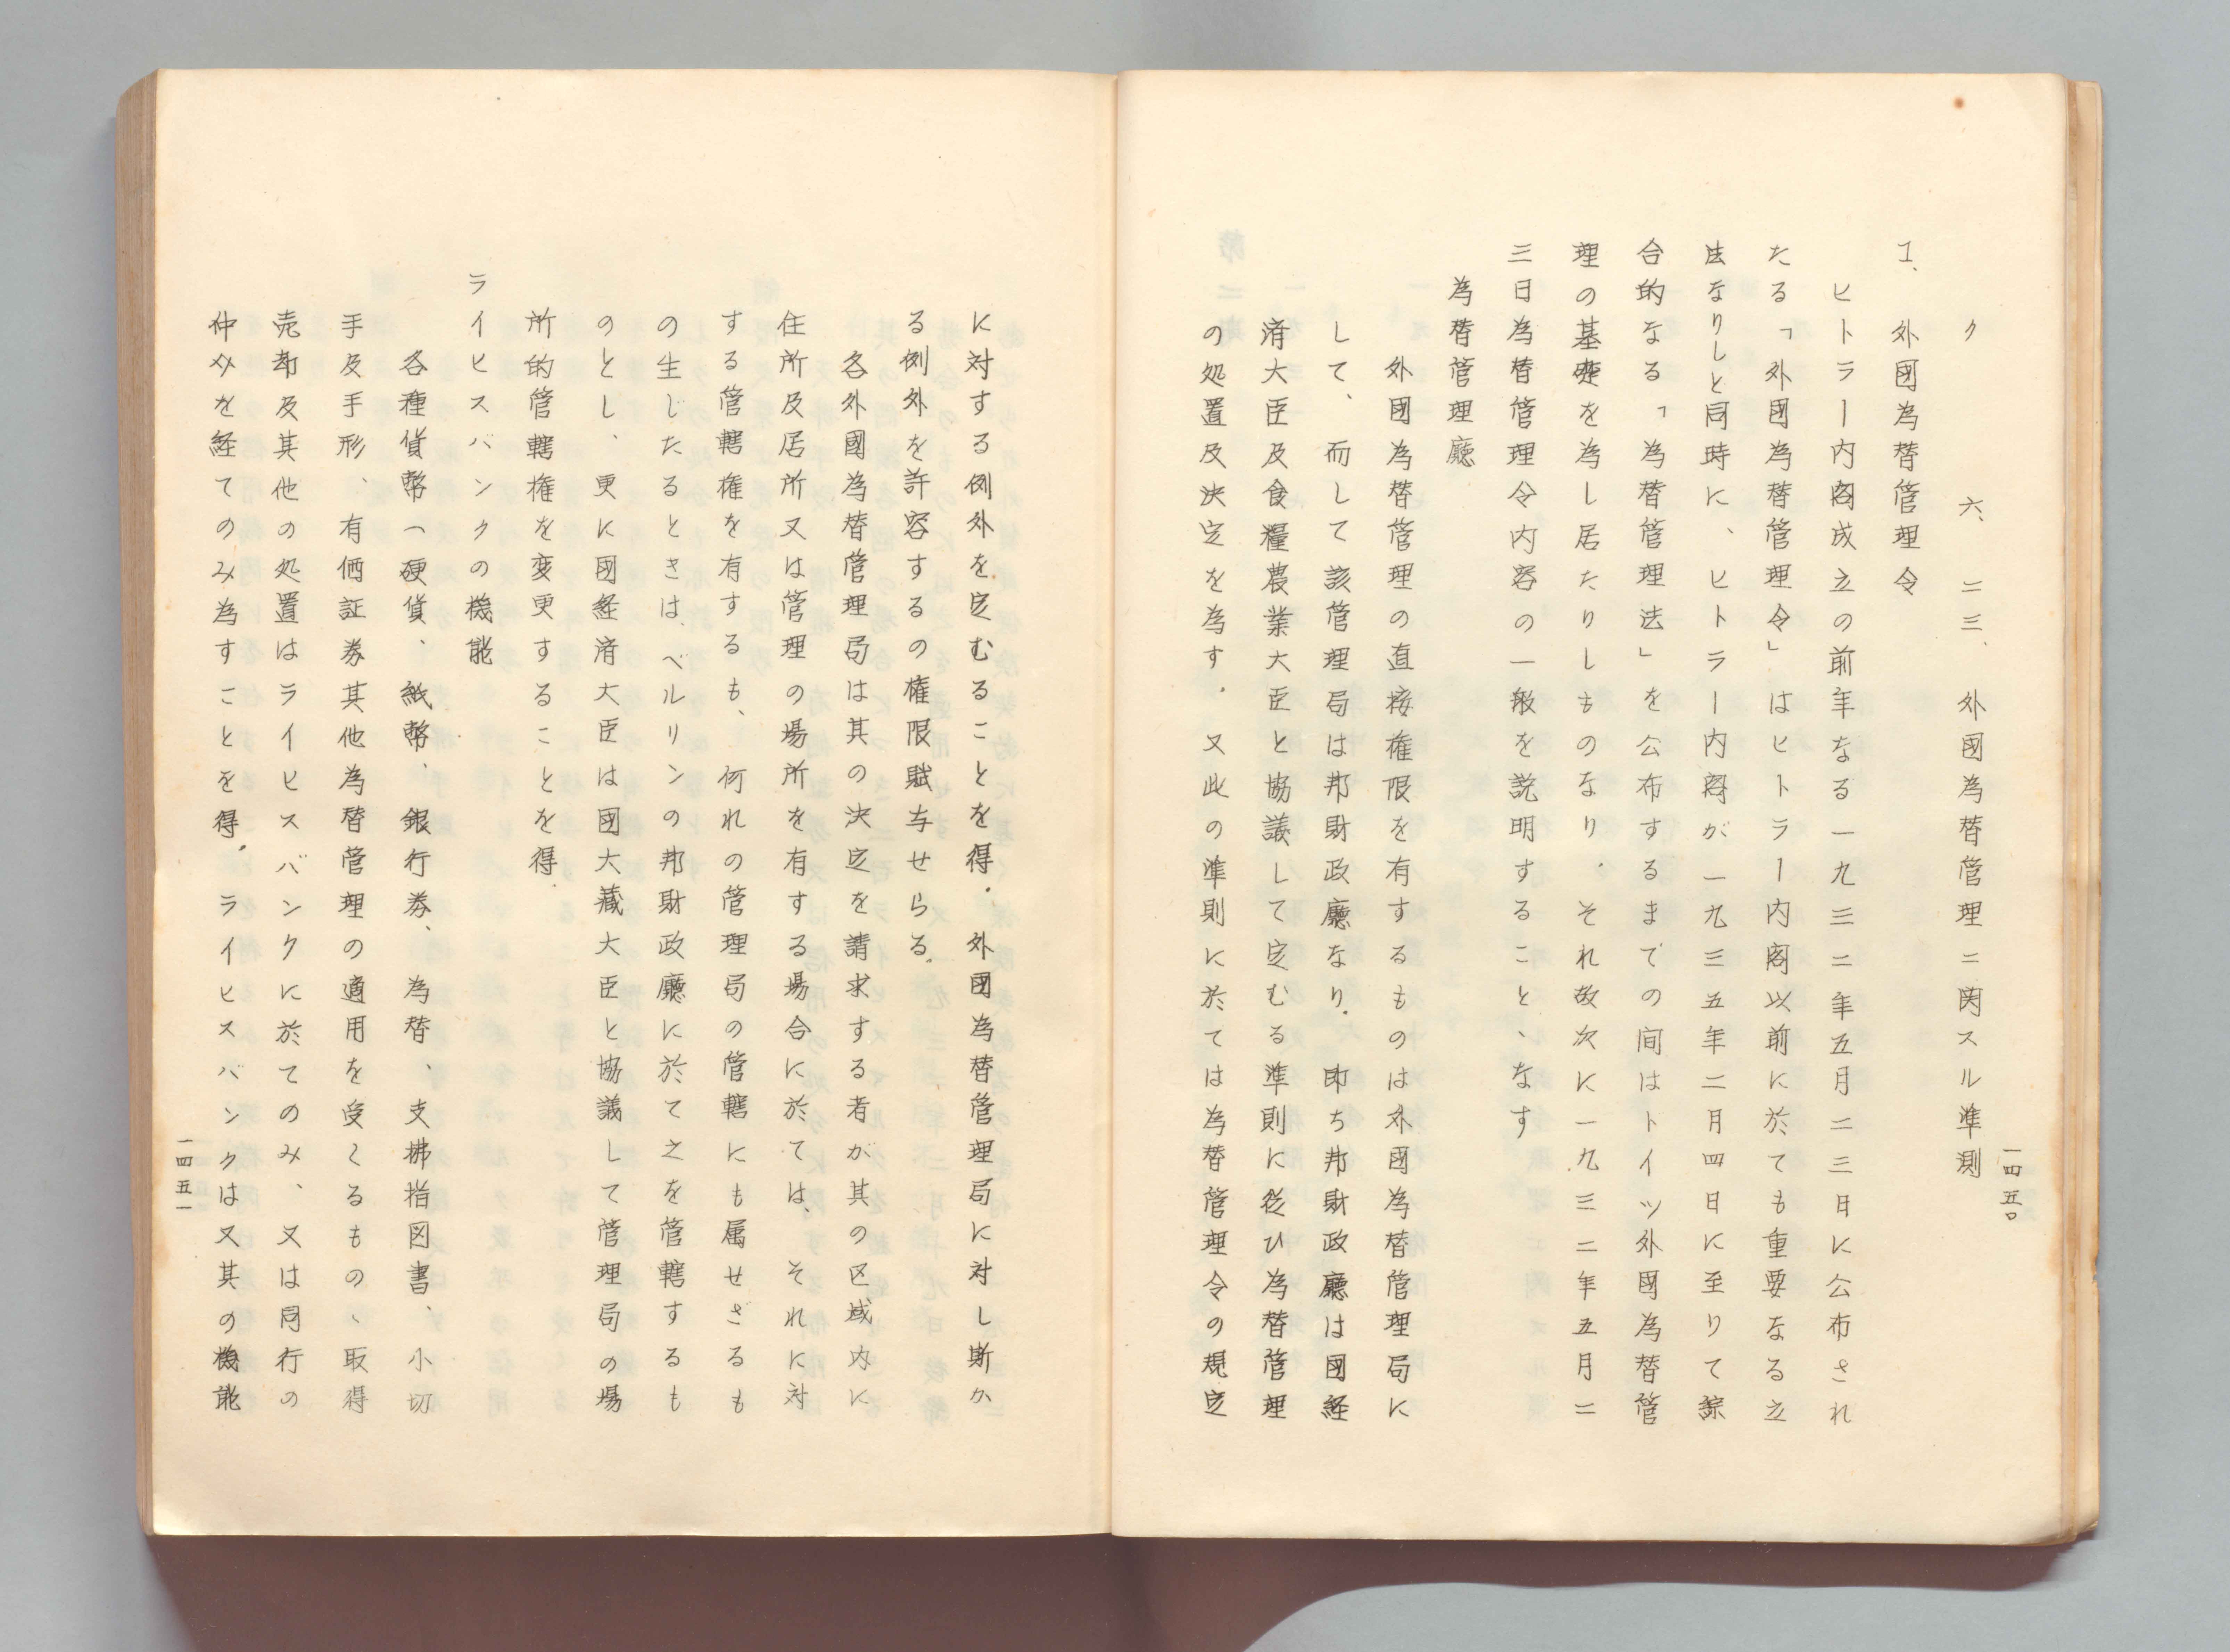 一四五〇
ク　六、二三、外國為替管理ニ関スル準測
I、外國為替管理令
ヒトラー内閣成立の前年なる一九三二年五月二三日に公布され
たる「外國為替管理令」はヒトラー内閣以前に於ても重要なる立
法なりしと同時に、ヒトラー内閣が一九三五年二月四日に至りて綜
合的なる「為替管理法」を公布するまでの間はトイツ外國為替管
理の基礎を為し居たりしものなり．それ故次に一九三二年五月二
三日為替管理令内容の一般を説明すること、なす
為替管理廳
外國為替管理の直接権限を有するものは外國為替管理局に
して、而して該管理局は邦財政廳なり．即ち邦財政廳は國経
済大臣及食糧農業大臣と協議して定むる準則に従ひ為替管理
の処置及決定を為す．又此の準則に於ては為替管理令の規定
に対する例外を定むることを得．外國為替管理局に対し斯か
る例外を許容するの権限賦与せらる．
各外國為替管理局は其の決定を請求する者が其の区域内に
住所及居所又は管理の場所を有する場合に於ては、それに対
する管轄権を有するも、何れの管理局の管轄にも属せざるも
の生じたるときは、ベルリンの邦財政廳に於て之を管轄するも
のとし、更に國経済大臣は國大藏大臣と協議して管理局の場
所的管轄権を変更することを得．
ライヒスバンクの機能
各種貨幣（硬貨、紙幣、銀行券、為替、支拂指図書、小切
手及手形、有価証券其他為替管理の適用を受くるもの、取得
売却及其他の処置はライヒスバンクに於てのみ、又は同行の
仲介を経てのみ為すことを得．ライヒスバンクは又其の機能
一四五一